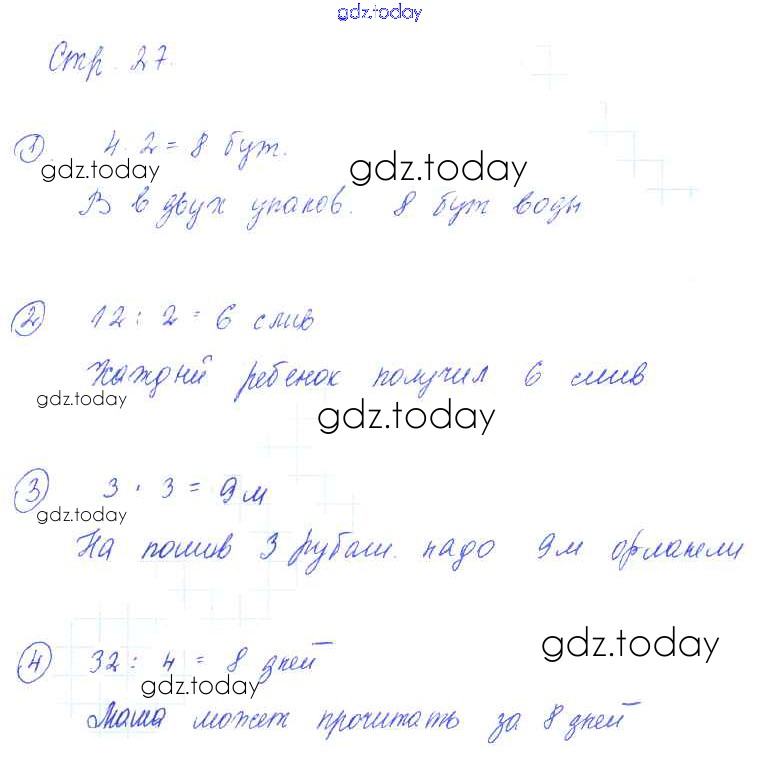 gdz.today
Стр. 27.
1 4 · 2 = 8 бут.
gdz.today gdz.today
В в двух упаков. 8 бут воды
2 12 : 2 = 6 слив
Каждый ребенок получил 6 слив
gdz.today gdz.today
3 3 · 3 = 9 м
gdz.today
На пошив 3 рубаш. надо 9 м фланели
4 32 : 4 = 8 дней
gdz.today gdz.today
Мама может прочитать за 8 дней